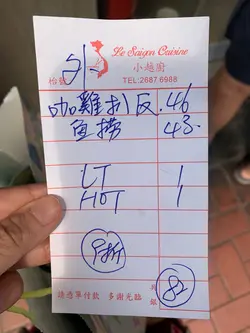 外
Le Saigon Cuisine
小越廚
枱號
TEL:2687 6988
咖雞扒反.46
魚撈 43.
LT 1
HOT
9折
共銀 82
請憑單付款 多謝光臨